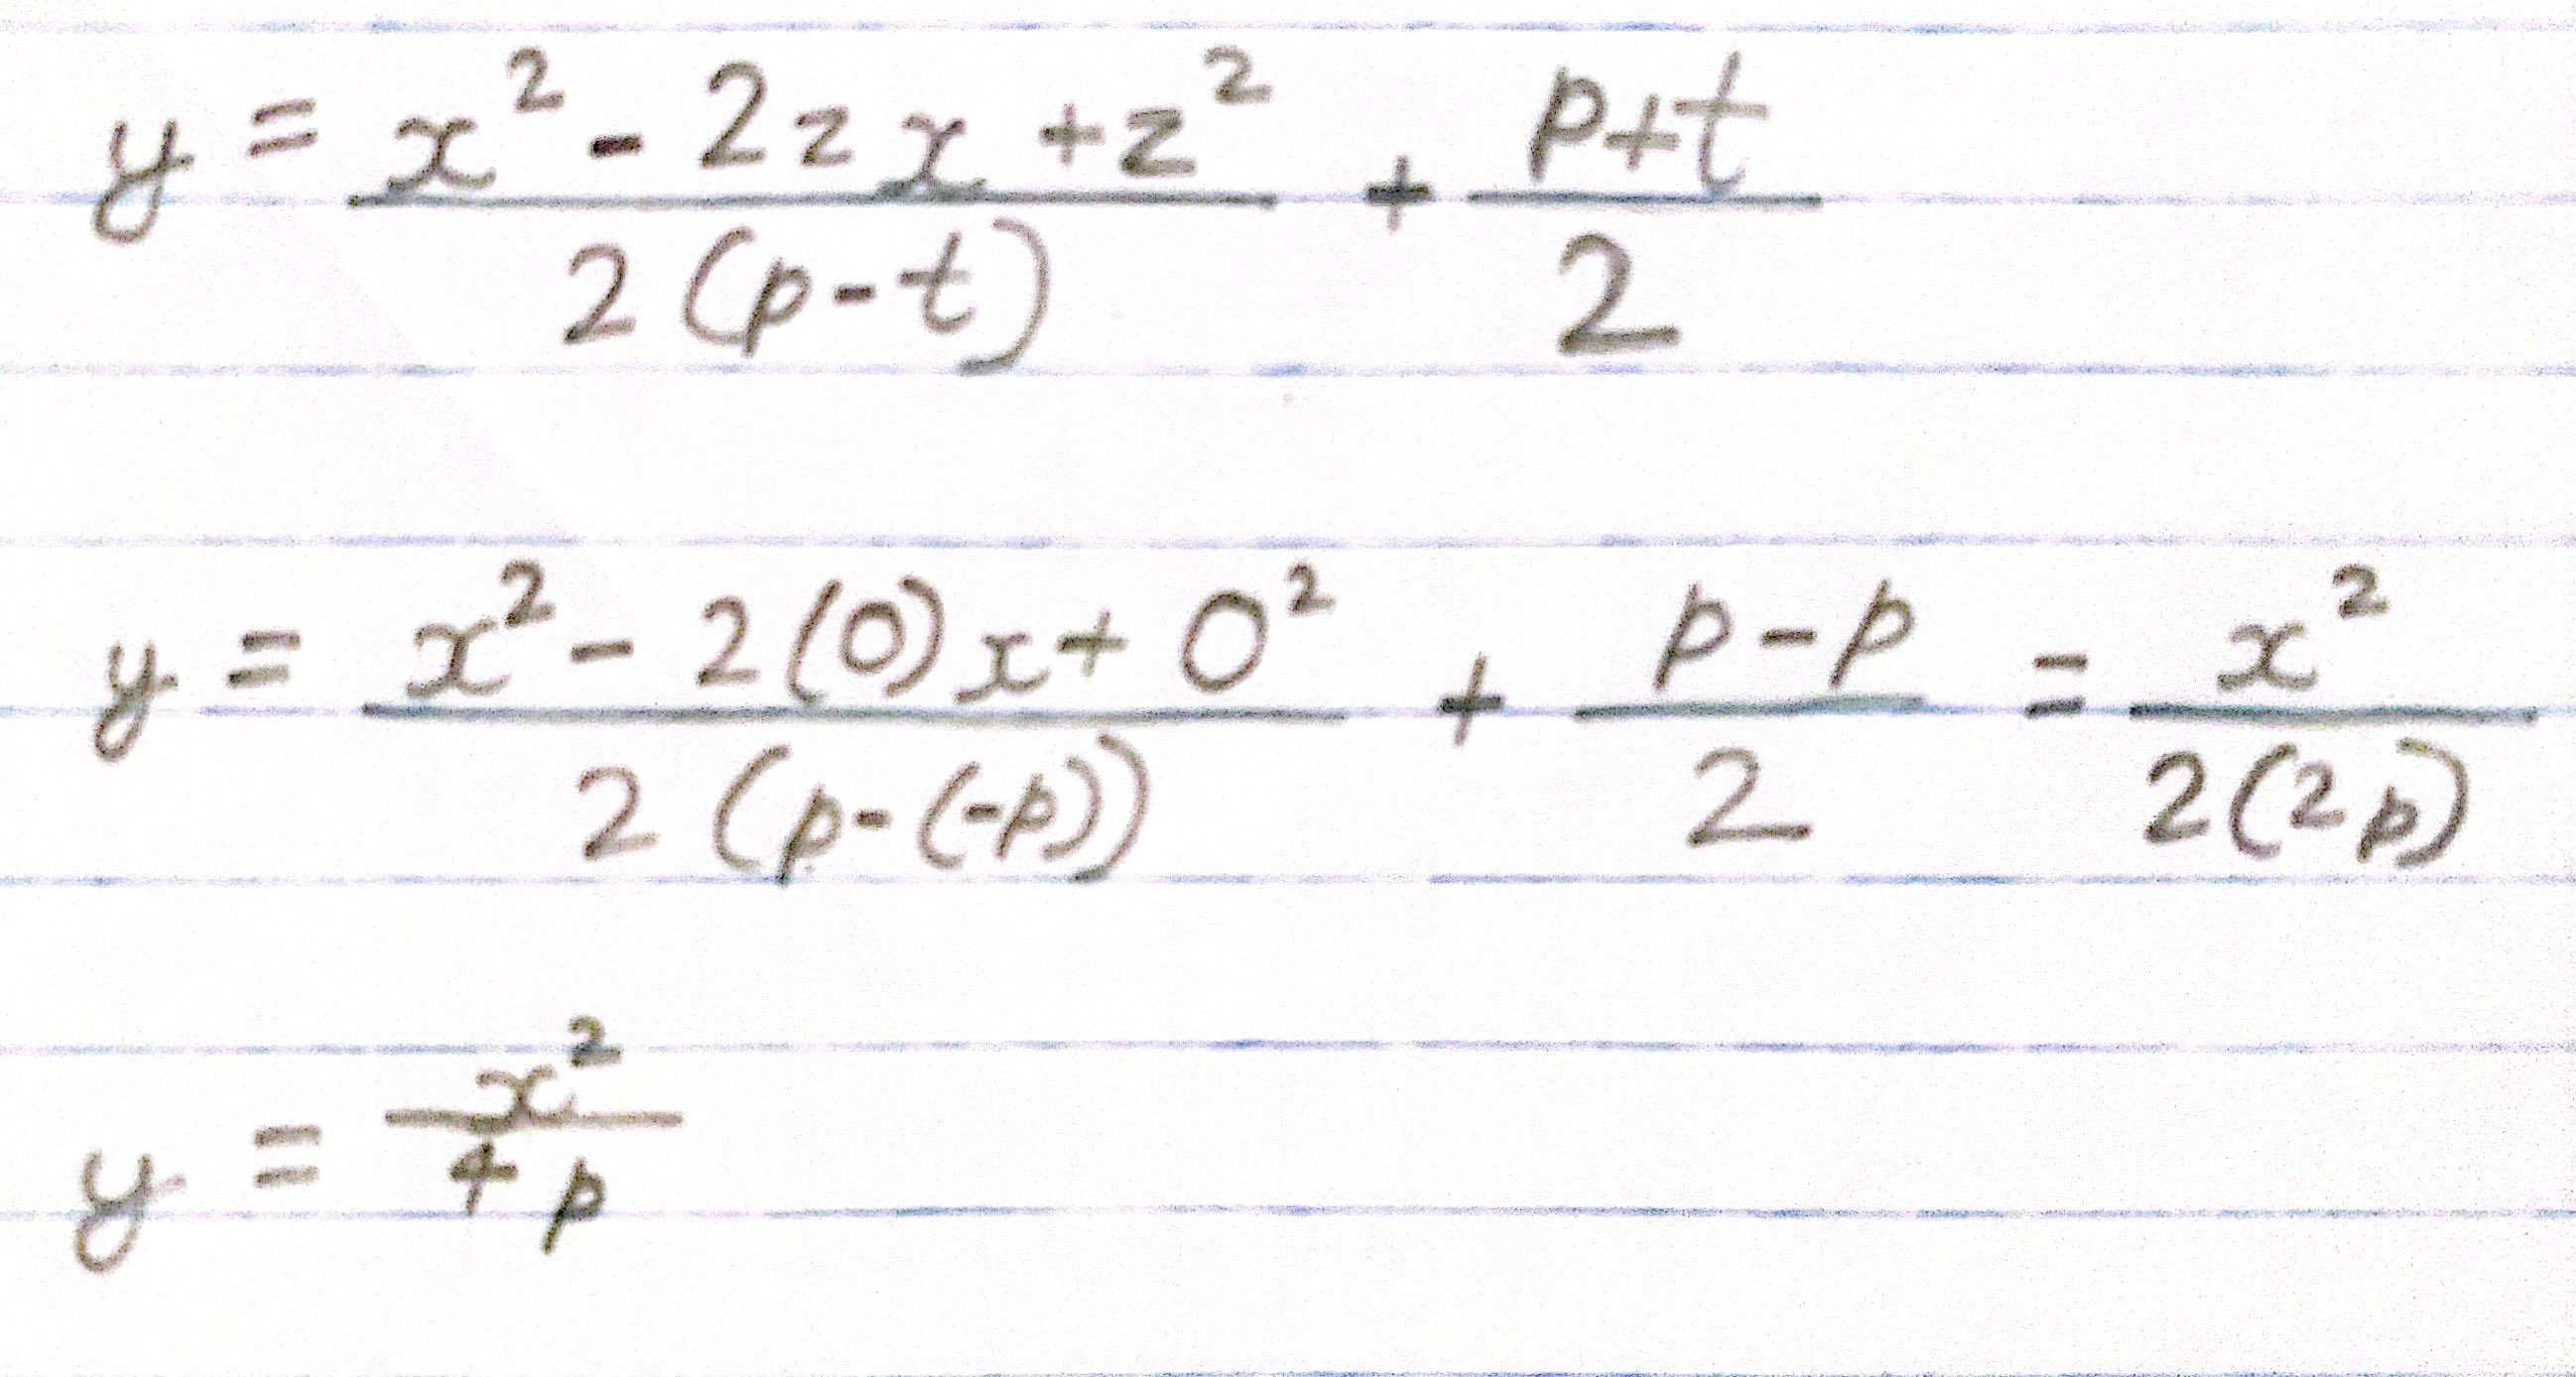 y = \frac{x^2 - 2zx + z^2}{2(p-t)} + \frac{p+t}{2}
y = \frac{x^2 - 2(0)x + 0^2}{2(p-(-p))} + \frac{p-p}{2} = \frac{x^2}{2(2p)}
y = \frac{x^2}{4p}